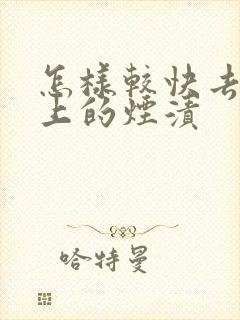 怎樣較快去
上的煙漬
哈特曼